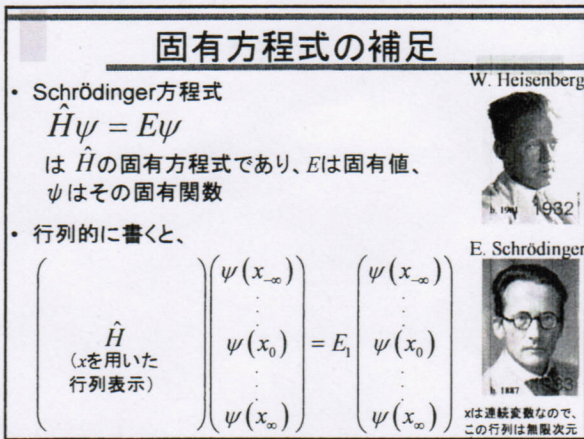 固有方程式の補足
• Schrödinger方程式
Ĥψ = Eψ
は Ĥの固有方程式であり、Eは固有値、
ψはその固有関数
• 行列的に書くと、
Ĥ
(xを用いた
行列表示)
ψ(x₋∞)
.
.
ψ(x₀)
.
.
ψ(x∞)
= E₁
ψ(x₋∞)
.
.
ψ(x₀)
.
.
ψ(x∞)
W. Heisenberg
b. 1901 1932
E. Schrödinger
b. 1887 1933
xは連続変数なので、
この行列は無限次元